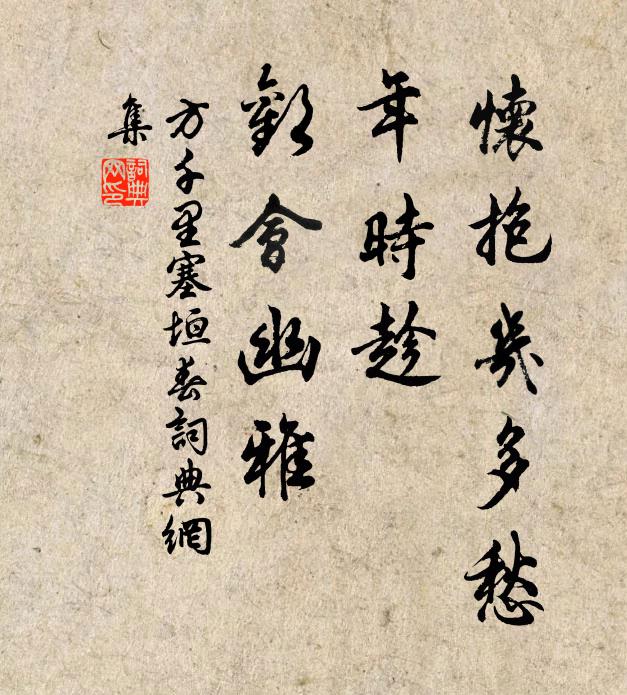 懷抱幾多愁
年時趁
歡會幽雅
方千里塞垣春詞典網
集
詞典
网印